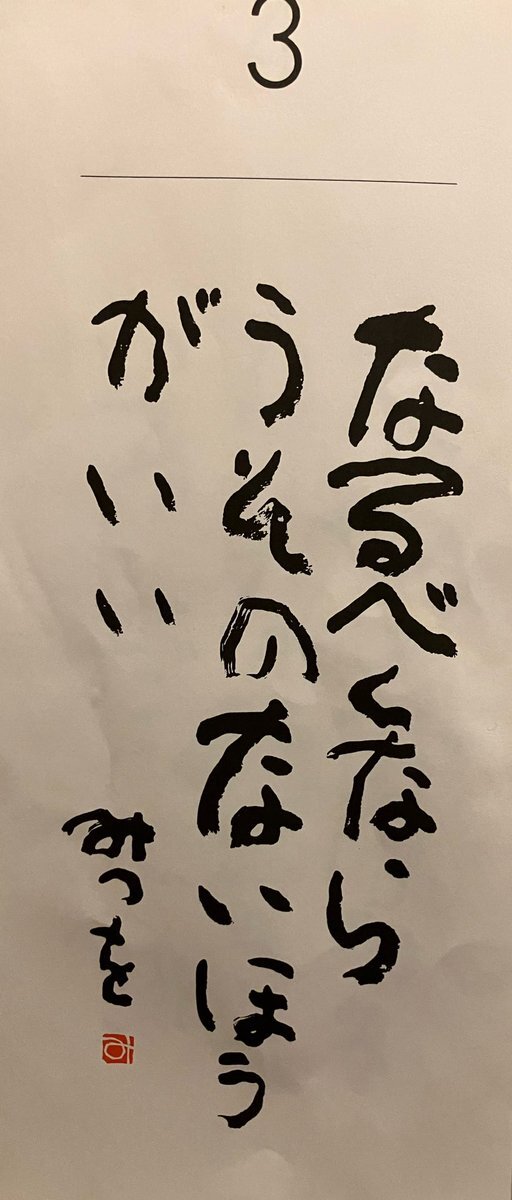 3
なるべくなら
うそのないほう
がいい
みつを
み